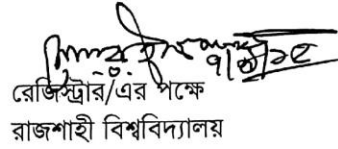 রেজিস্ট্রার/এর পক্ষে
রাজশাহী বিশ্ববিদ্যালয়